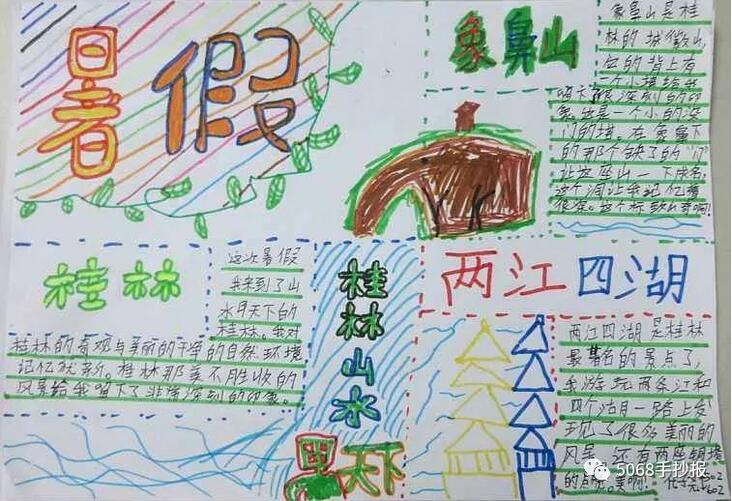 暑假
象鼻山
象鼻山是桂
林的城徽山,
它的背上有
一个小塔给我
留下很深刻的印
象。这是一个小的没
门的塔。在象鼻下
的那个缺了的“门”
让这座山一下成名,
这个洞让我记忆
很深。这个标致山
桂林
这次暑假
我来到了山
水甲天下的
桂林。我对
桂林的奇观与美丽的干净的自然环境
记忆犹新。桂林那美不胜收的
风景给我留下了非常深刻的印象。
桂林山水
甲天下
两江四湖
两江四湖是桂林
最著名的景点了,
我游玩两条江和
四个湖一路上发
现了很多美丽的
风景,还有两座铜塔
的点缀。美啊!
5068手抄报